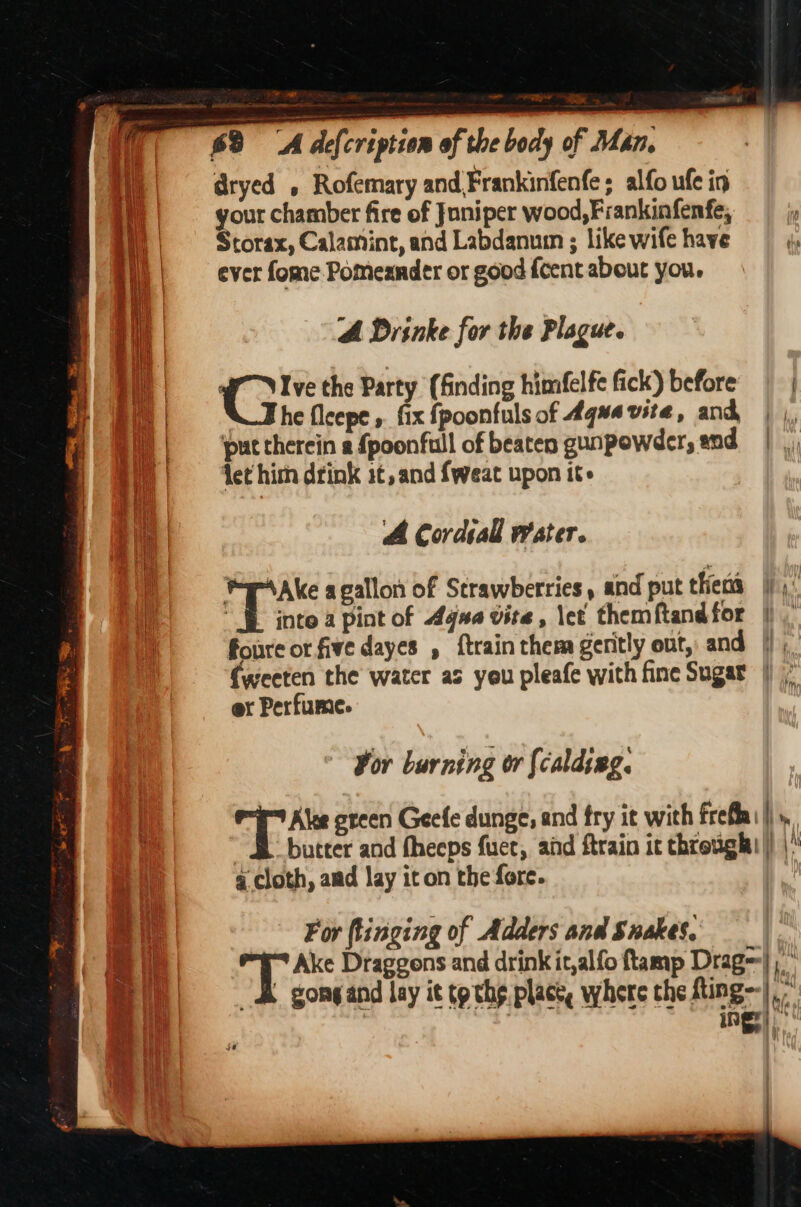 68 A deſcription of the body of Man.
dryed , Roſemary and Frankinſenſe ; alſo uſe in
your chamber fire of Juniper wood, Frankinſenſe,
Storax, Calamint, and Labdanum ; likewiſe have
ever ſome Pomeander or good ſcent about you.
A Drinke for the Plague.
GIve the Party (finding himſelfe ſick) before
he ſleepe , ſix ſpoonfuls of Aqua vitæ, and
put therein a ſpoonfull of beaten gunpowder, and
let him drink it, and ſweat upon it.
A Cordiall Water.
TAke a gallon of Strawberries , and put them
into a pint of Aqua vitæ , let them ſtand for
foure or five dayes , ſtrain them gently out, and
ſweeten the water as you pleaſe with fine Sugar
or Perfume.
For burning or ſcalding.
TAke green Geeſe dunge, and fry it with freſh
butter and ſheeps ſuet, and ſtrain it through
a cloth, and lay it on the ſore.
For ſtinging of Adders and Snakes.
TAke Draggons and drink it, alſo ſtamp Drag-
gons and lay it to the place, where the ſting-
ing